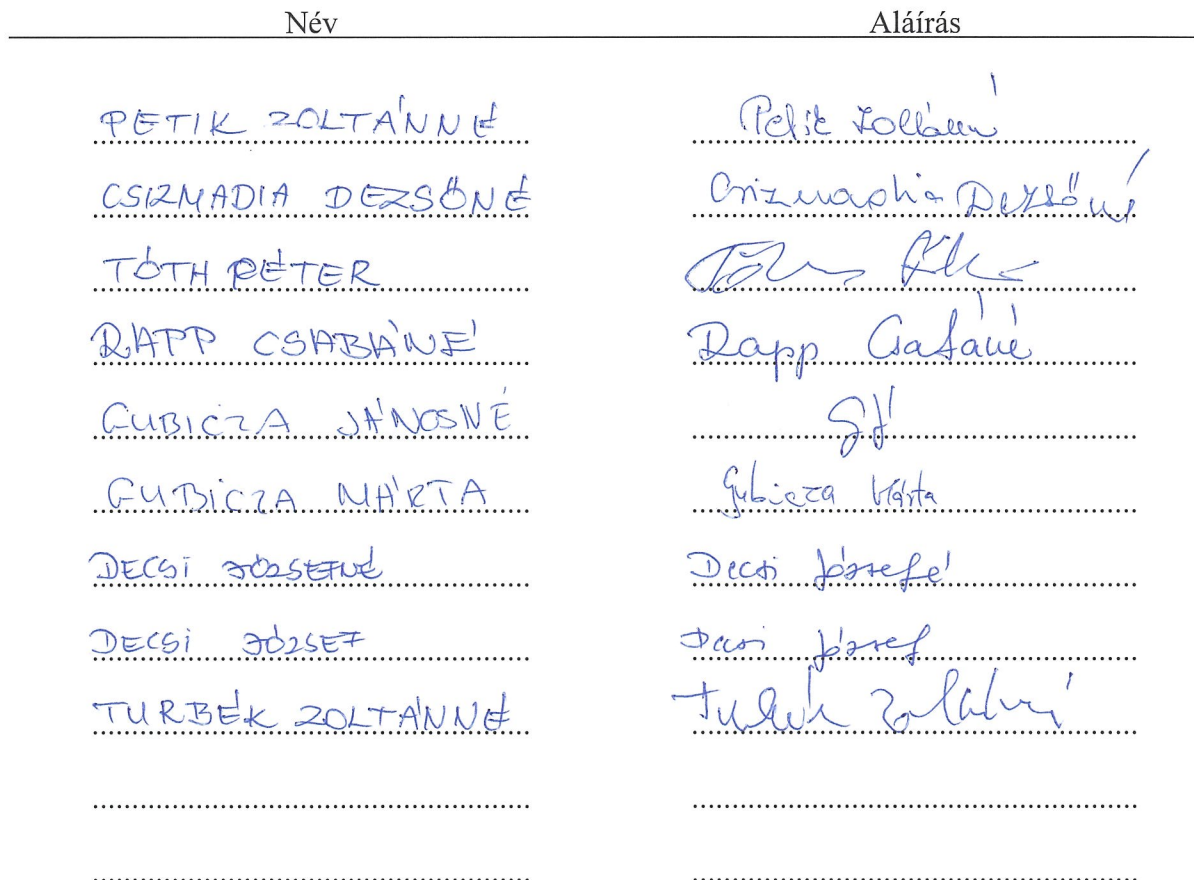 Név Aláírás
PETIK ZOLTÁNNÉ Petik Zoltánné
CSIZMADIA DEZSŐNÉ Csizmadia Dezsőné
TÓTH PÉTER Tóth Péter
RAPP CSABÁNÉ Rapp Csabáné
GUBICZA JÁNOSNÉ GJ
GUBICZA MÁRTA Gubicza Márta
DECSI JÓZSEFNÉ Decsi Józsefé
DECSI JÓZSEF Decsi József
TURBÉK ZOLTÁNNÉ Turbék Zoltánné